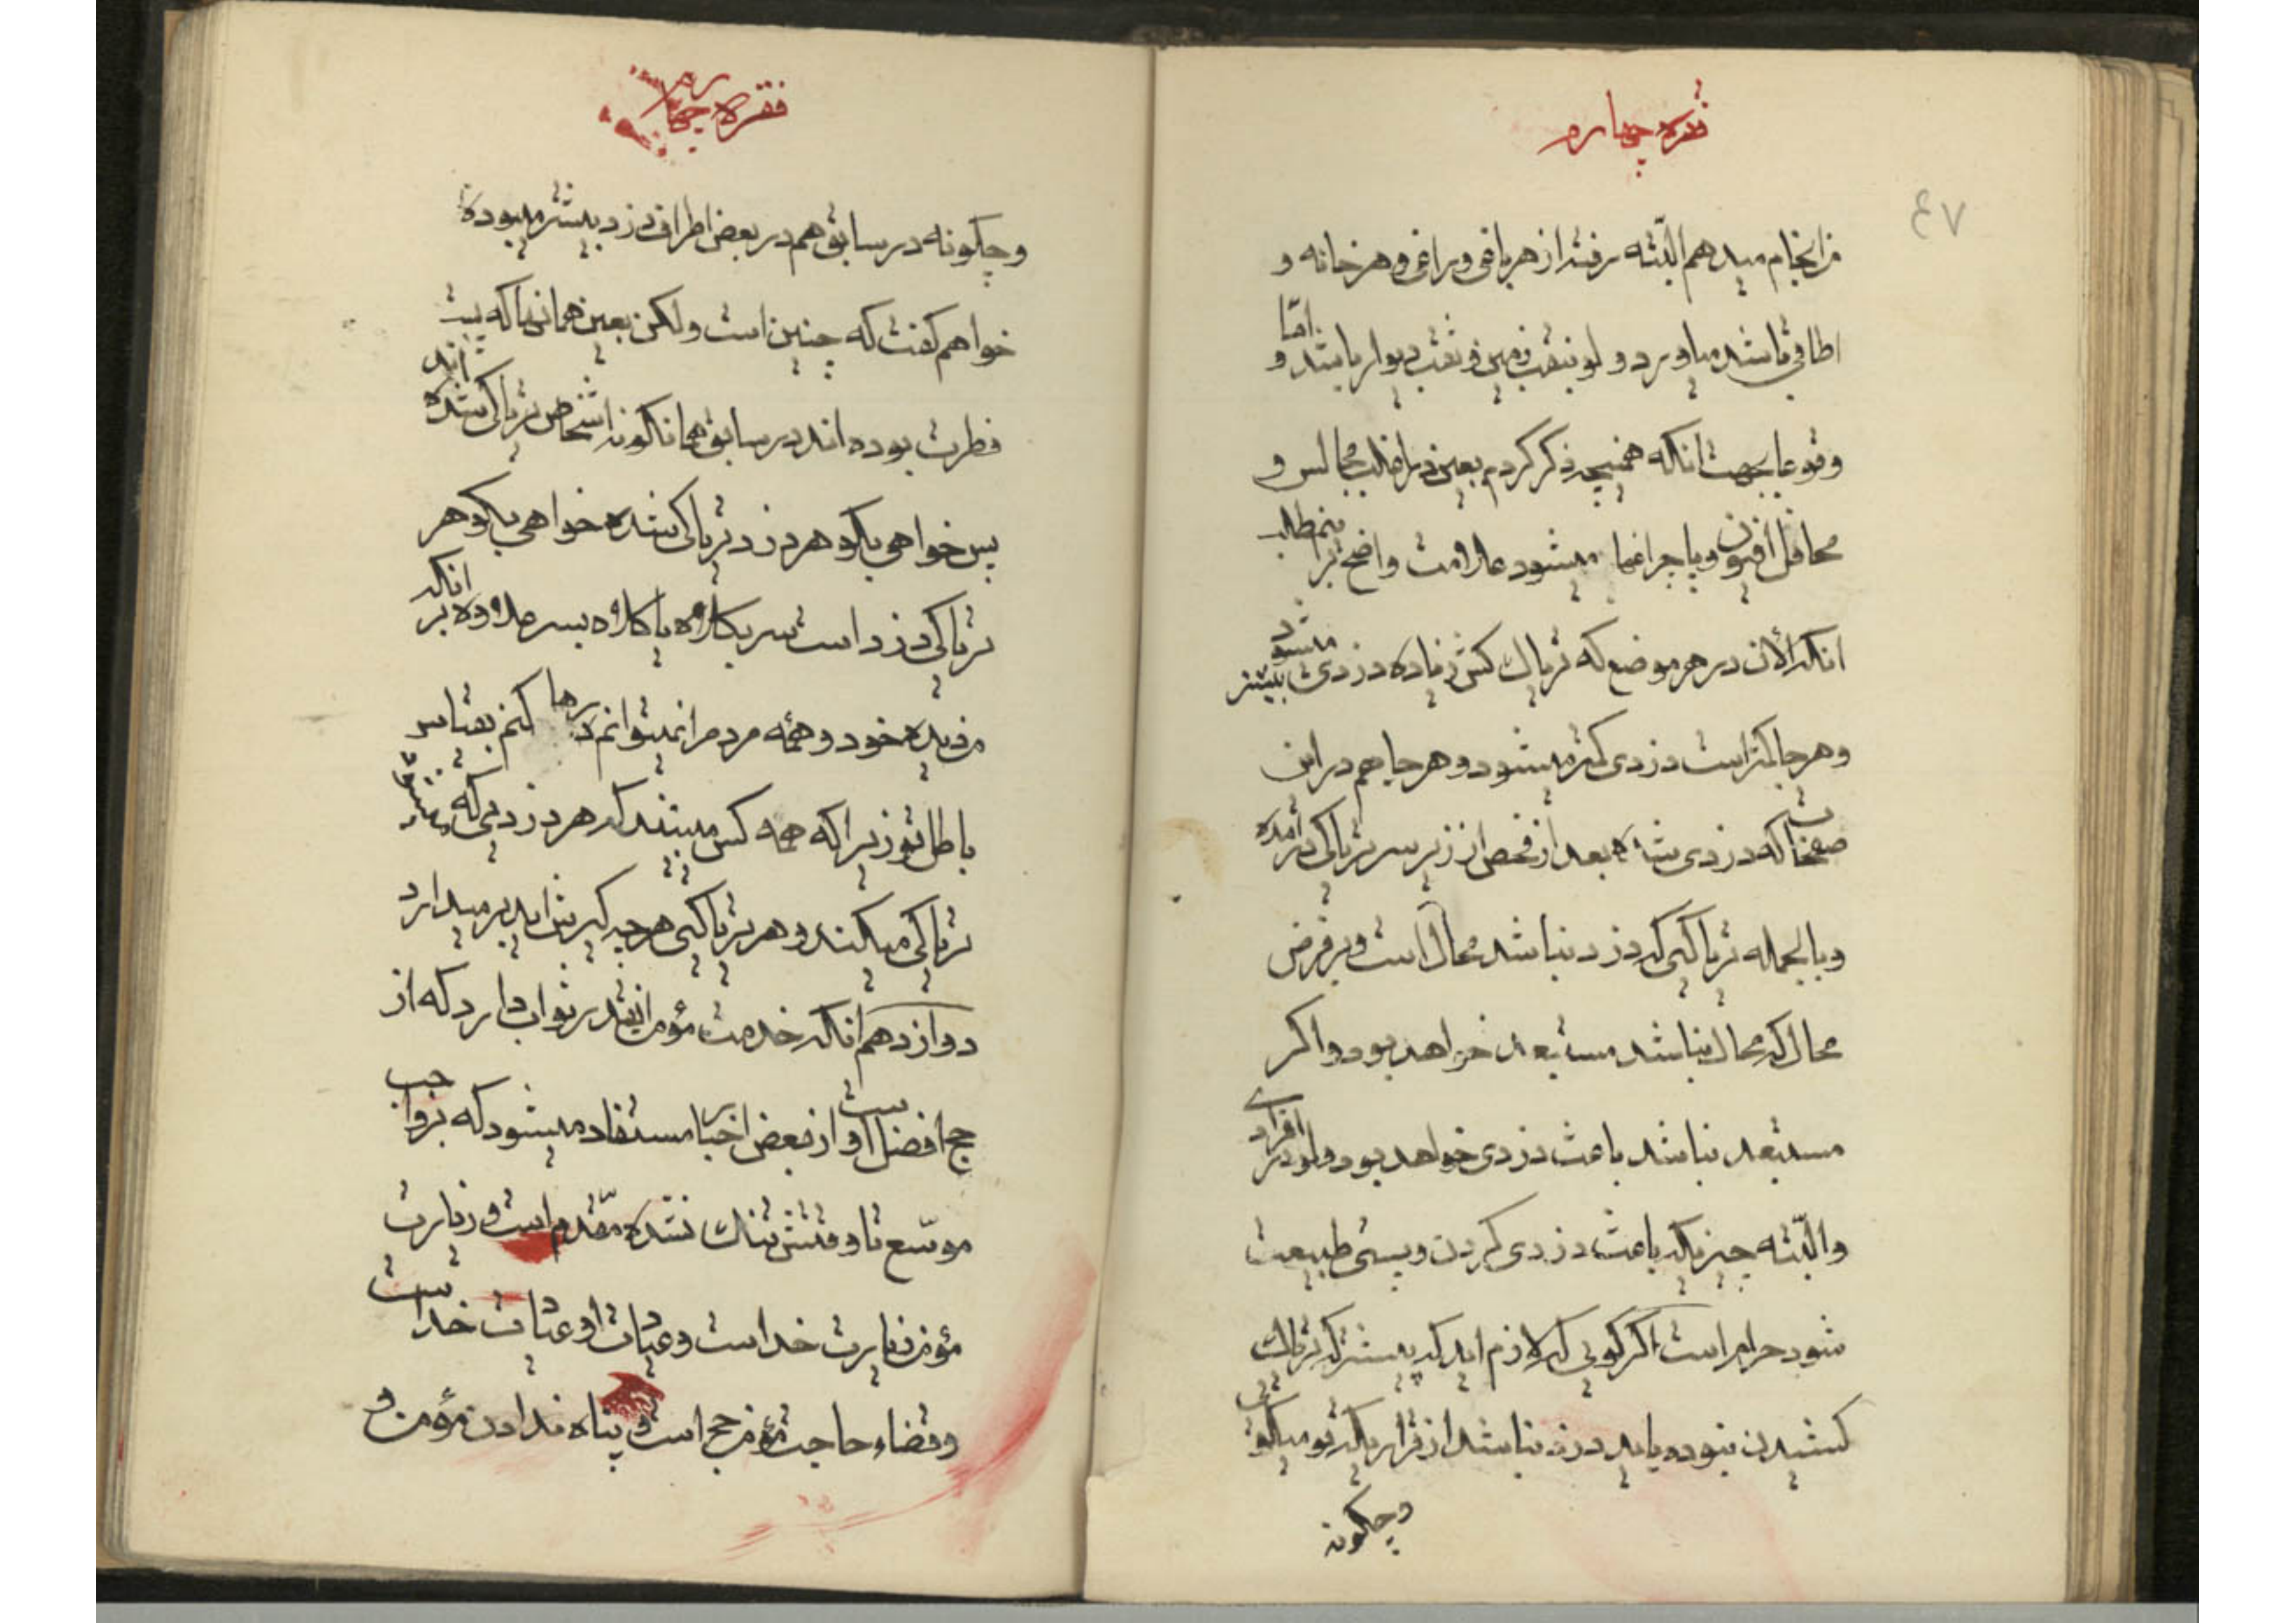 فقره چهارم
٤٧
من انجام میدهم البته رفته از هر باغی و راغی و هر خانه و
اطاقی باشد میاورد و لو بنقب زمین و نقب دیوار باشد و امّا
وقوعا بجهت آنکه همچه ذکر کردم بعین در اغلب مجالس و
محافل افیون و با چراغها میشود علامت واضح تر
آنکه الأن در هر موضع که تریاك کش زیاده دزدی بیشتر میشود
و هر جا کمتر است دزدی کمتر میشود و هر جا هم در این
صفحات که دزدی شده بعد از فحص از زیر سر تریاکی در آمده
و بالجمله تریاکیی که دزد نباشد محال است و بر فرض
محال که محال نباشد مستبعد خواهد بود و اگر
مستبعد نباشد باعث دزدی خواهد بود و لو در افرادی
و البتّه چیزیکه باعث دزدی کردن و پستی طبیعت
شود حرام است اگر گویی که لازم اید که پیشتر که تریاك
کشیدن نبوده باید دزد نباشد از قراریکه تو میگویی
و چگونه
فقره چهارم
و چگونه در سابق هم در بعض اطراف دزد بیشتر میبوده
خواهم گفت که چنین است ولکن بعین همانها که پست
فطرت بوده اند در سابق همانگونه اشخاص تریاکی شده اند
پس خواهی بگو هر دزد تریاکی شده خواهی بگو هر
تریاکی دزد است سر بکلاه یا کلاه بسر علاوه بر آنکه
من دیده خود و همه مردم را نمیتوانم رها کنم بقیاس
باطل تو زیرا که همه کس میبینند که هر دزدی که میشود
تریاکی میکند و هر تریاکیی هر چه گیرش اید بر میدارد
دوازدهم آنکه خدمت مؤمن اینقدر ثواب دارد که از
حج افضل است و از بعض اخبار مستفاد میشود که بر واجب
موسّع تا وقتش تنك نشده مقدم است و زیارت
مؤمن زیارت خداست و عیادت او عیادت خداست
و قضاء حاجت مؤمن حج است و پناه ندادن مؤمن و